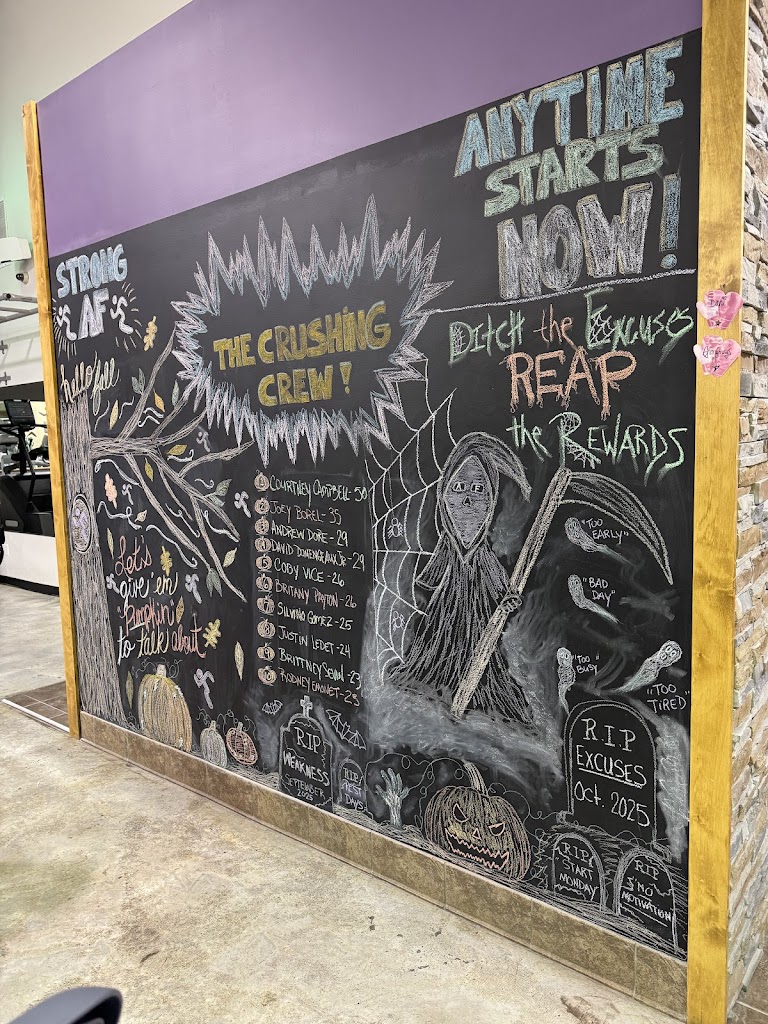 STRONG
AF
hello fall
Let's
give 'em
"Pumpkin"
to talk about
THE CRUSHING
CREW!
1 COURTNEY CAMPBELL - 50
2 JOEY BOREL - 35
3 ANDREW DORE - 29
4 DAVID DOMENGEAUX JR - 29
5 COBY VICE - 26
6 BRITTANY PAYTON - 26
7 SILVINO GOMEZ - 25
8 JUSTIN LEDET - 24
9 BRITTNEY - 23
10 RODNEY EMONET - 23
ANYTIME
STARTS
NOW!
DITCH the EXCUSES
REAP
the REWARDS
A F
A
"TOO
EARLY"
"BAD
DAY"
"TOO
BUSY"
"TOO
TIRED"
R.I.P
WEAKNESS
SEPTEMBER
2025
RIP
REST
DAYS
R.I.P
EXCUSES
Oct. 2025
R.I.P
"START
MONDAY"
RIP
"NO
MOTIVATION"